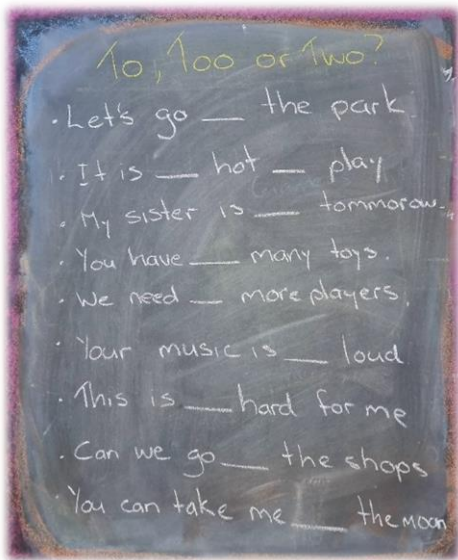 To, Too or Two?
· Let's go __ the park
· It is __ hot __ play
· My sister is __ tommorow.
· You have __ many toys.
· We need __ more players.
· Your music is __ loud
· This is __ hard for me
· Can we go __ the shops
· You can take me __ the moon